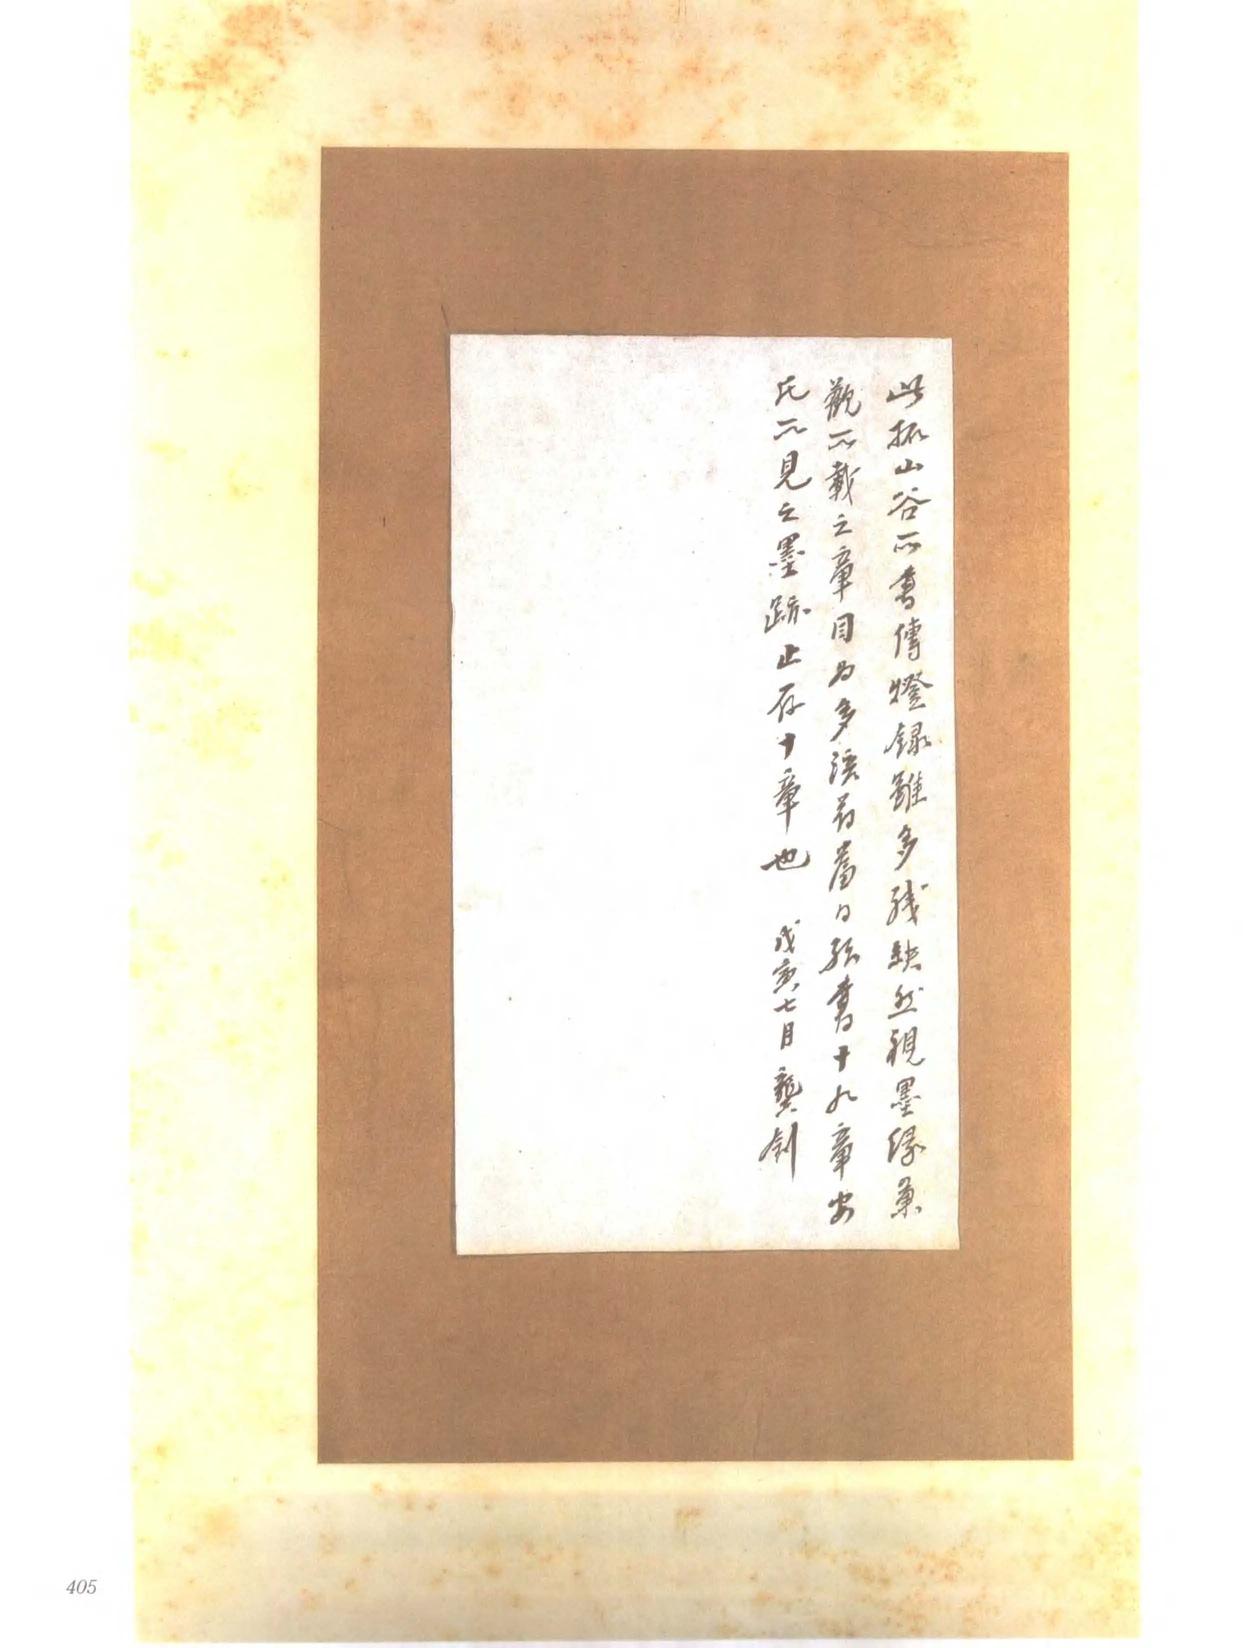 此拓山谷所書傳燈錄雖多殘缺然視墨緣彙
觀所載之章目為多該者舊日所書十九章安
氏所見之墨跡止存十章也　戊寅七月龔釗
405